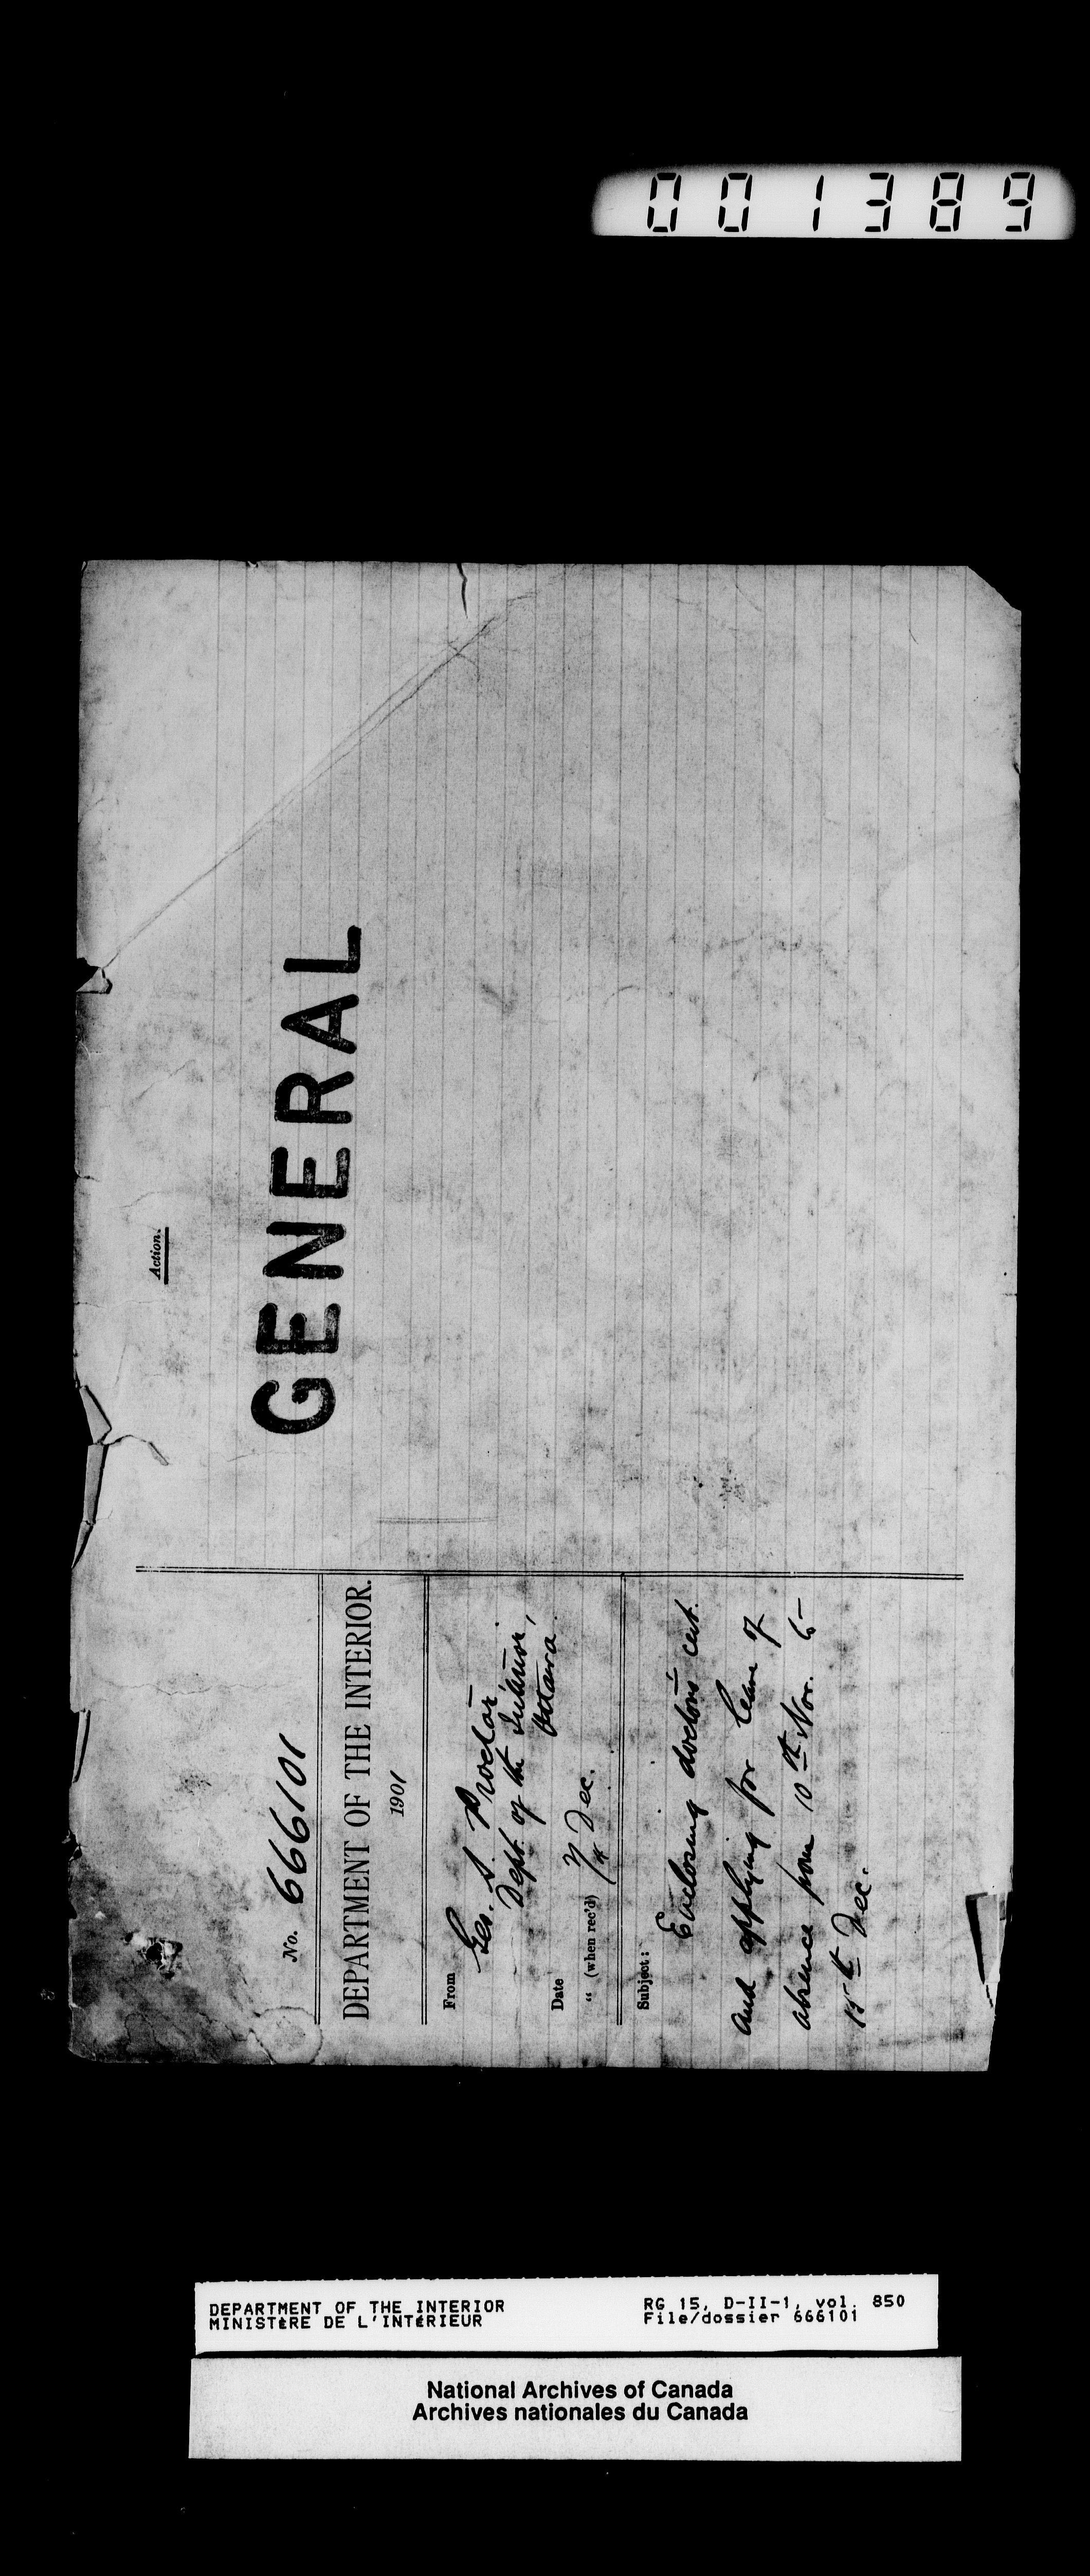 001389
No. 666101
DEPARTMENT OF THE INTERIOR.
1901
From Geo. S. Proctor
Dept. of the Interior,
Ottawa.
Date 7 Dec.
" (when rec'd)
Subject:
Enclosing doctor's cert.
and applying for leave of
absence from 10th Nor. to
15th Dec.
Action.
GENERAL
DEPARTMENT OF THE INTERIOR
MINISTÈRE DE L'INTÉRIEUR
RG 15, D-II-1, vol. 850
File/dossier 666101
National Archives of Canada
Archives nationales du Canada